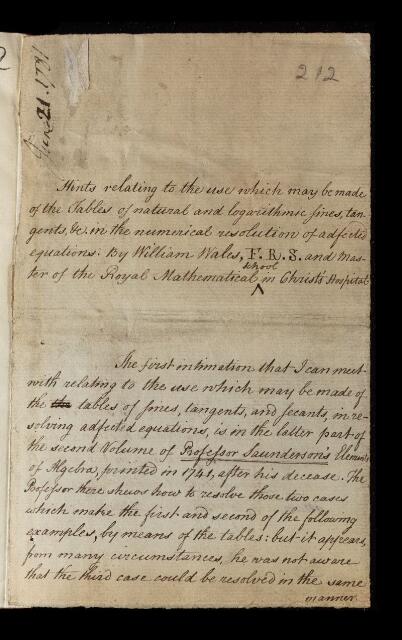 212
June 21. 1781
Hints relating to the use which may be made
of the Tables of natural and logarithmic sines, tan-
gents, &c. in the numerical resolution of adfected
equations. By William Wales, F. R. S. and Mas-
school
ter of the Royal Mathematical ^ in Christ's Hospital
The first intimation that I can meet
with relating to the use which may be made of
the the tables of sines, tangents, and secants, in re-
solving adfected equations, is in the latter part of
the second Volume of Professor Saunderson's Elements
of Algebra, printed in 1741, after his decease. The
Professor there shews how to resolve those two cases
which make the first and second of the following
examples, by means of the tables: but it appears,
from many circumstances, he was not aware
that the third case could be resolved in the same
manner.